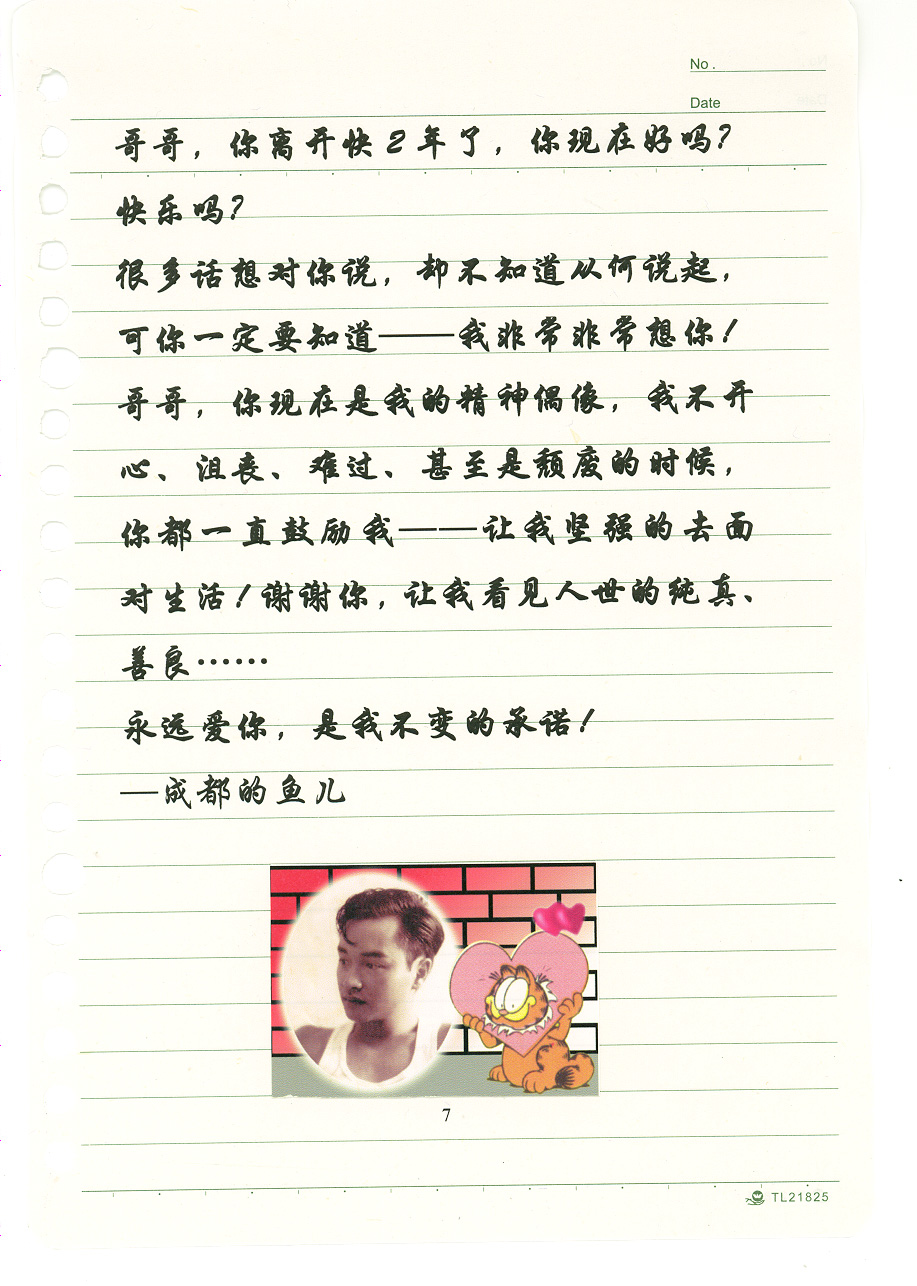 No .
Date
哥哥，你离开快2年了，你现在好吗？
快乐吗？
很多话想对你说，却不知道从何说起，
可你一定要知道——我非常非常想你！
哥哥，你现在是我的精神偶像，我不开
心、沮丧、难过、甚至是颓废的时候，
你都一直鼓励我——让我坚强的去面
对生活！谢谢你，让我看见人世的纯真、
善良……
永远爱你，是我不变的承诺！
—成都的鱼儿
7
TL21825